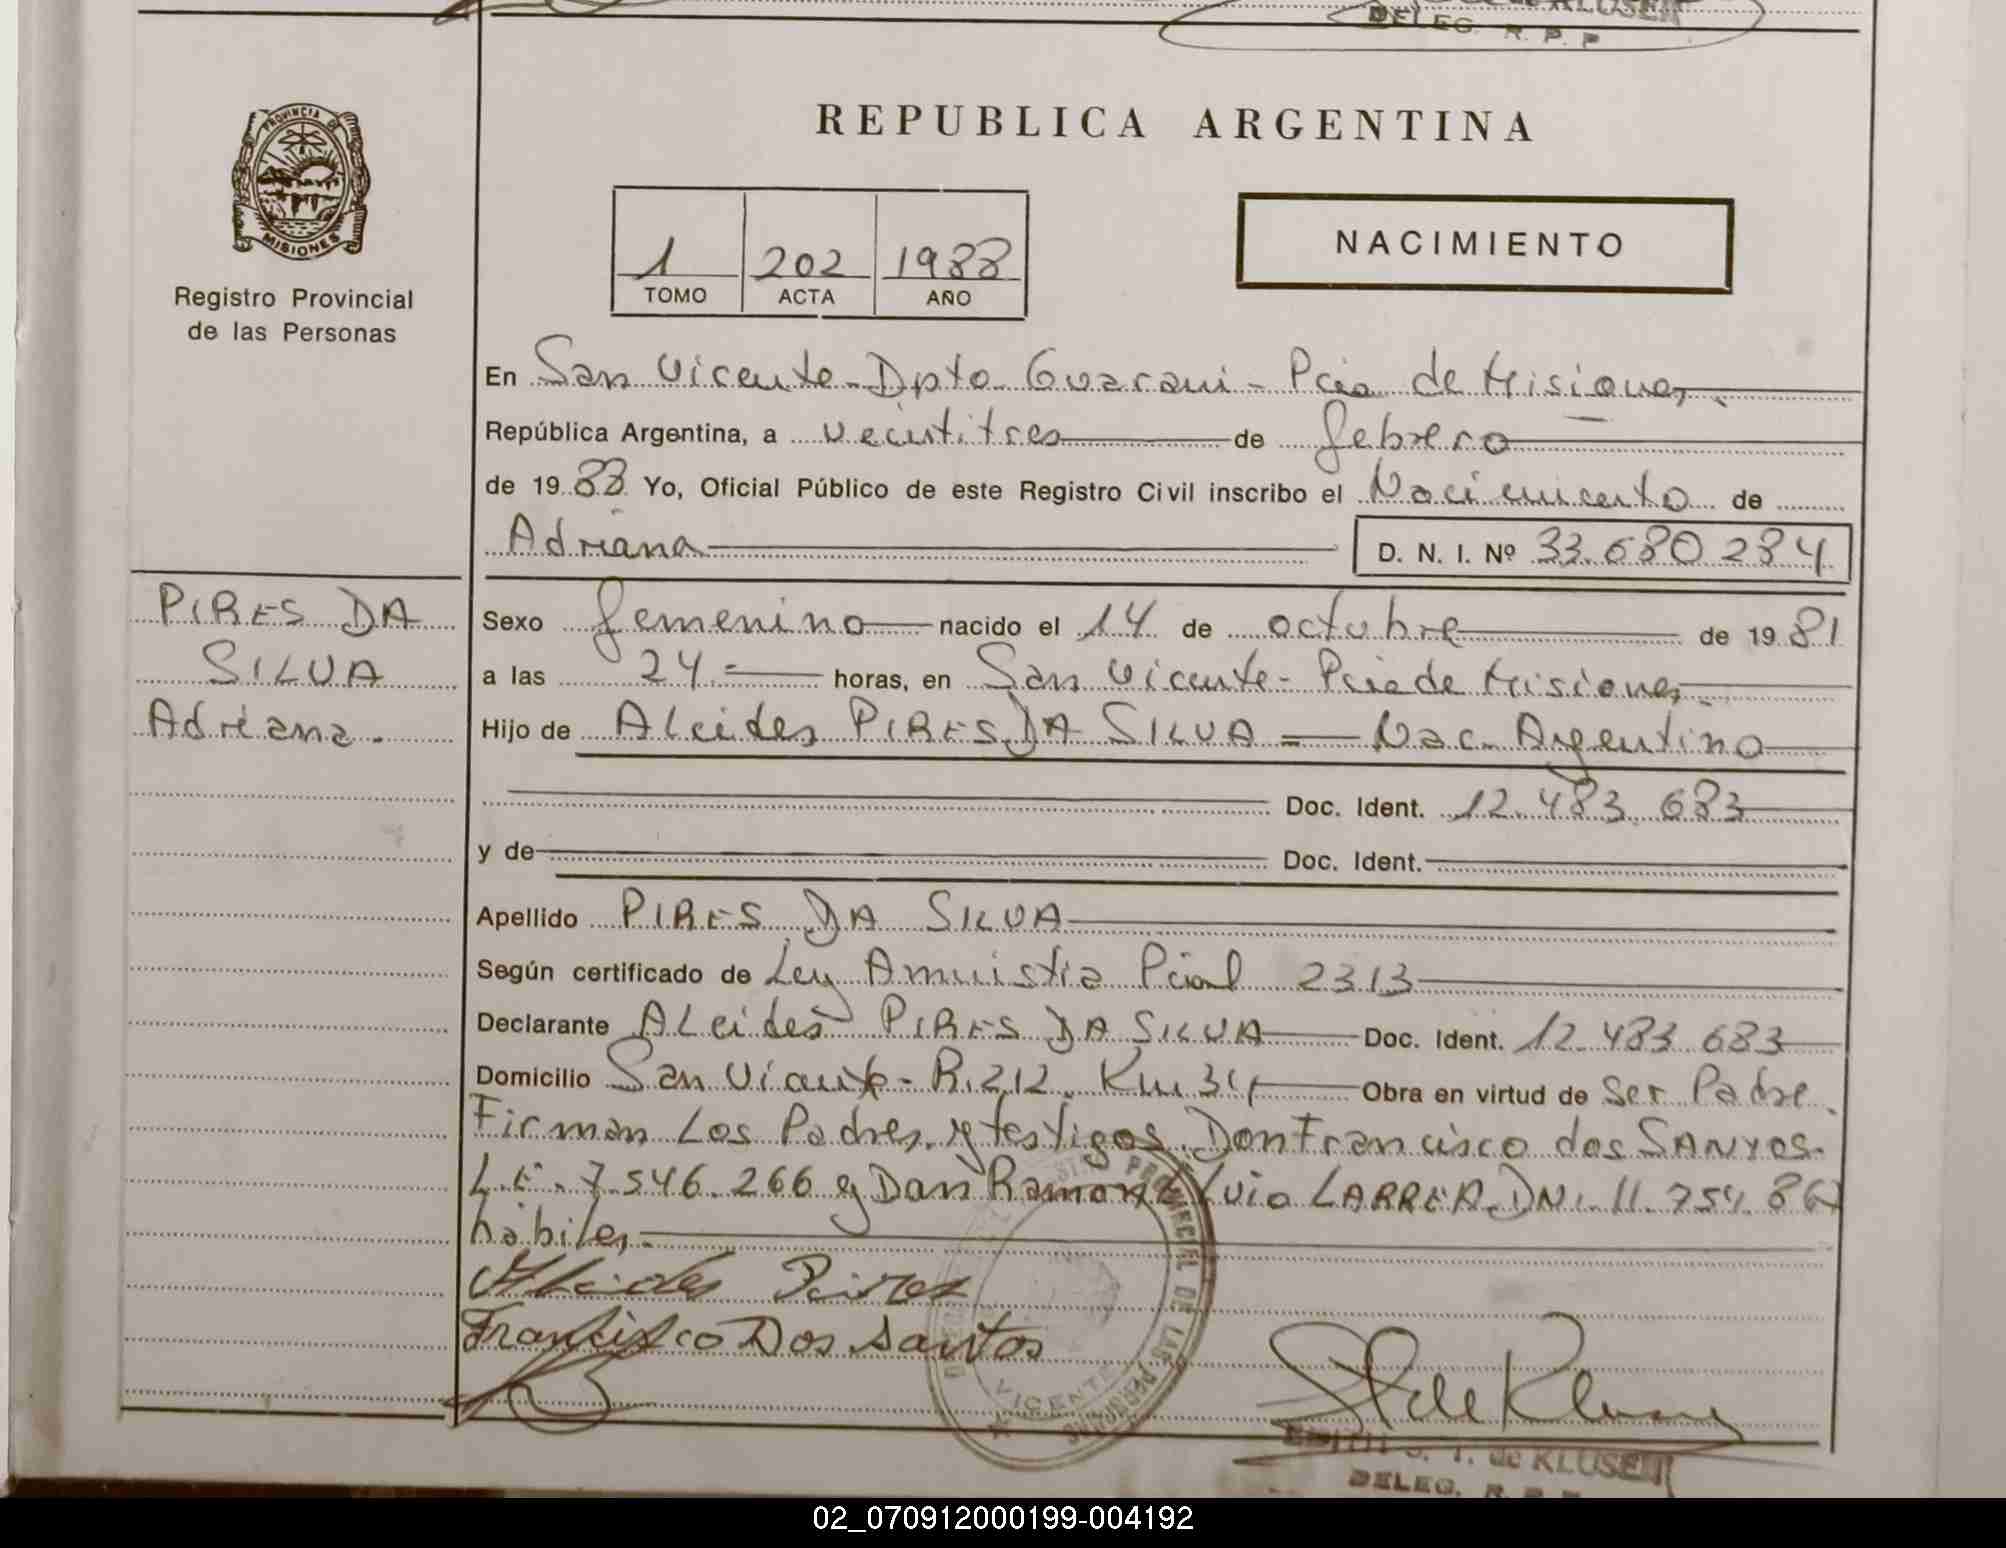 DELEG. R. P. P
REPUBLICA ARGENTINA
PROVINCIA DE
MISIONES
Registro Provincial
de las Personas
1 202 1988
TOMO ACTA AÑO
NACIMIENTO
En San Vicente - Dpto Guarani - Pcia de Misiones
República Argentina, a veintitres de febrero
de 1988 Yo, Oficial Público de este Registro Civil inscribo el Nacimiento de
Adriana D. N. I. Nº 33.680.284
PIRES DA
SILVA
Adriana.
Sexo femenino nacido el 14 de octubre de 1981
a las 24 horas, en San Vicente - Pcia de Misiones
Hijo de Alcides PIRES DA SILVA = Nac. Argentino
Doc. Ident. 12.483.683
y de Doc. Ident.
Apellido PIRES DA SILVA
Según certificado de Ley Amnistia Pcial 2313
Declarante Alcides PIRES DA SILVA Doc. Ident. 12.483.683
Domicilio San Vicente - R.212. Km 34 Obra en virtud de Ser Padre.
Firman Los Padres y testigos Don Francisco dos SANTOS-
L.E. 7.546.266 y Don Ramon Luis LARREA DNI. 11.754.
hábiles.-
Alcides Pires
Francisco Dos Santos
PROVINCIAL DE LAS PERSONAS
VICENTE
S. T. de KLUSEN
DELEG. R. P. P
02_070912000199-004192